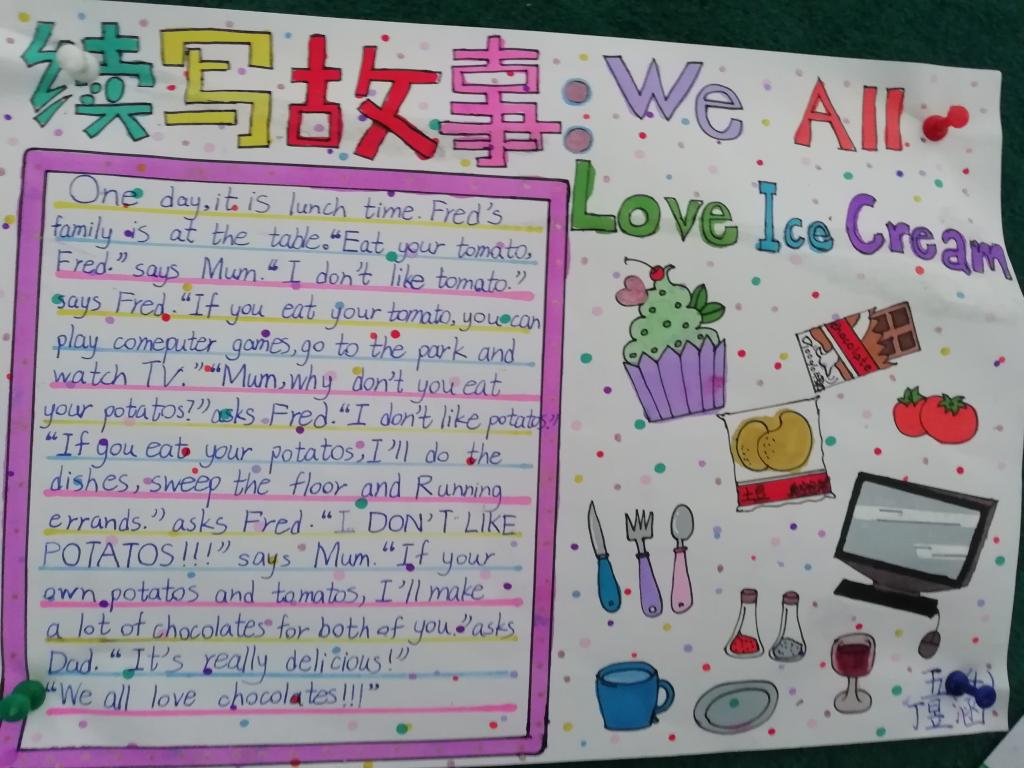 续写故事: We All
Love Ice Cream
One day, it is lunch time. Fred's
family is at the table. "Eat your tomato,
Fred." says Mum. "I don't like tomato."
says Fred. "If you eat your tomato, you can
play comeputer games, go to the park and
watch TV." "Mum, why don't you eat
your potatos?" asks Fred. "I don't like potatos."
"If you eat your potatos, I'll do the
dishes, sweep the floor and Running
errands." asks Fred. "I DON'T LIKE
POTATOS!!!" says Mum. "If your
own potatos and tomatos, I'll make
a lot of chocolates for both of you." asks
Dad. "It's really delicious!"
"We all love chocolates!!!"
chocolate
土豆
丁昱涵